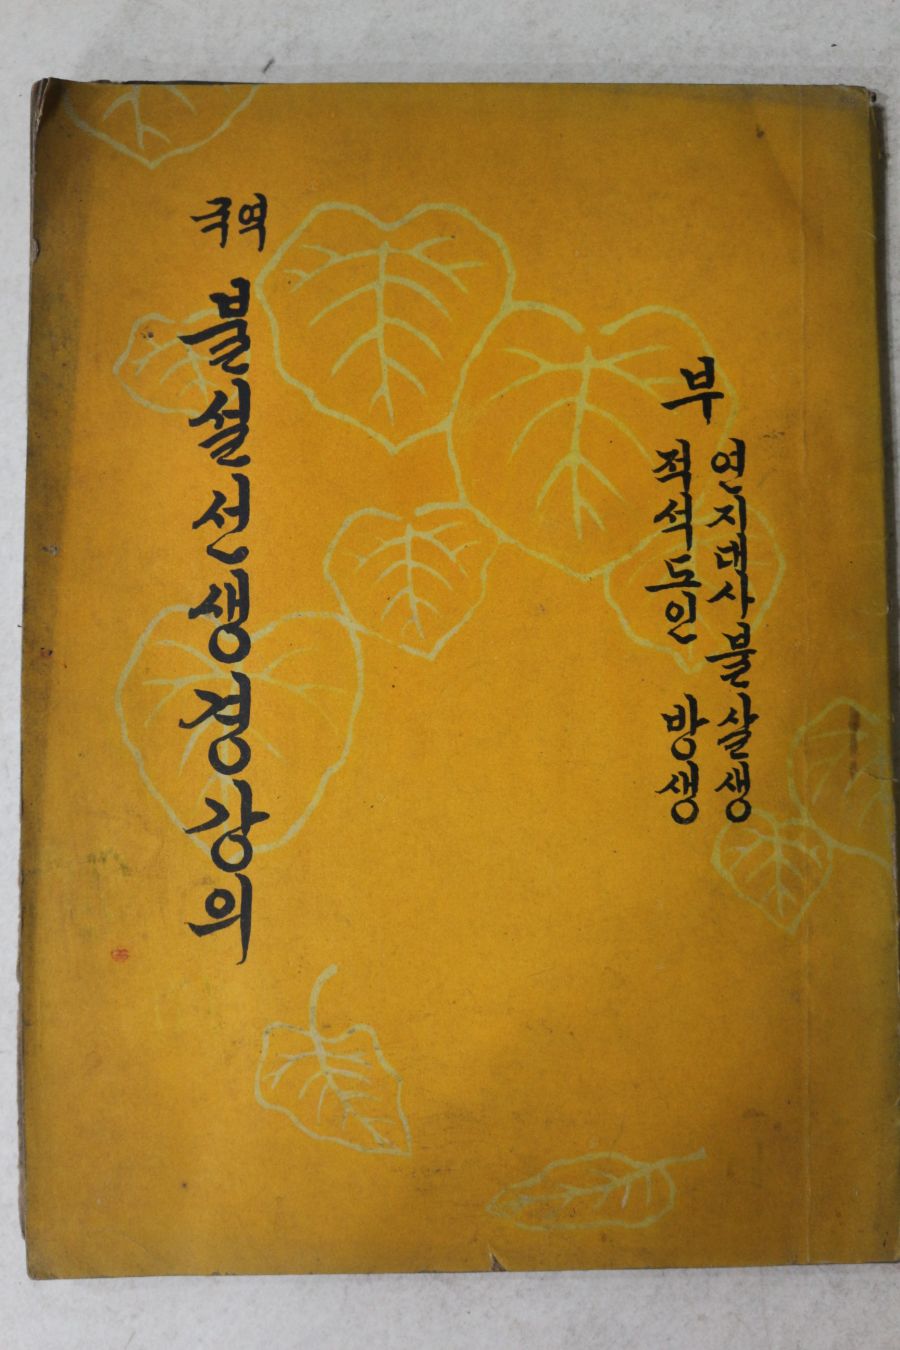 부
연지대사불살생
적석도인 방생
국역
불설선생경강의